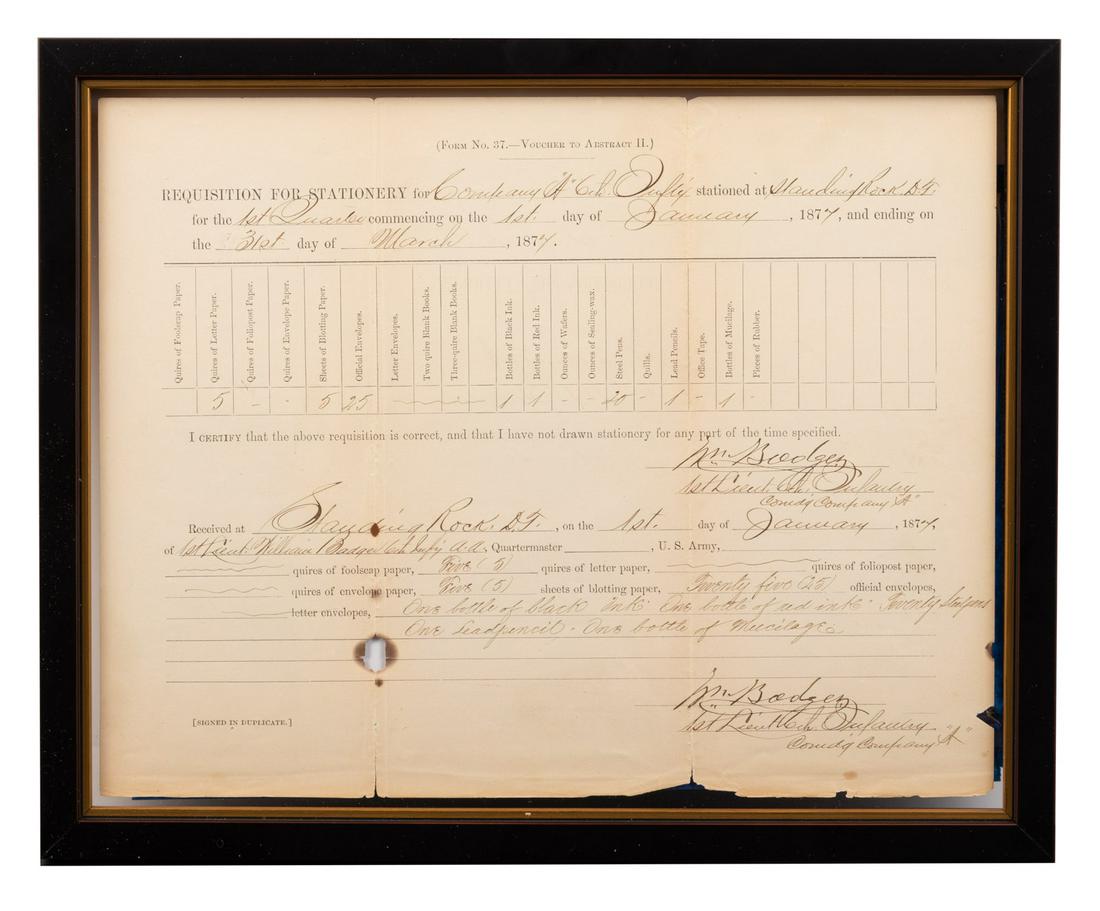 (Form No. 37.—Voucher to Abstract II.)
REQUISITION FOR STATIONERY for Company "A" 6th Infty stationed at Standing Rock. D.T.
for the 1st Quarter commencing on the 1st. day of January, 1877, and ending on
the 31st day of March, 1877.
Quires of Foolscap Paper. Quires of Letter Paper. Quires of Foliopost Paper. Quires of Envelope Paper. Sheets of Blotting Paper. Official Envelopes. Letter Envelopes. Two-quire Blank Books. Three-quire Blank Books. Bottles of Black Ink. Bottles of Red Ink. Ounces of Wafers. Ounces of Sealing-wax. Steel Pens. Quills. Lead Pencils. Office Tape. Bottles of Mucilage. Pieces of Rubber.
5 - - 5 25 1 1 - - 20 - 1 - 1 -
I certify that the above requisition is correct, and that I have not drawn stationery for any part of the time specified.
Wm Badger
1st Lieut. 6th. Infantry
Comd'g Company "A"
Received at Standing Rock. D.T., on the 1st. day of January, 1877,
of 1st Lieut. William Badger 6th Infty A.A. Quartermaster, U. S. Army,
quires of foolscap paper, Five (5) quires of letter paper, quires of foliopost paper,
quires of envelope paper, Five (5) sheets of blotting paper, Twenty five (25) official envelopes,
letter envelopes, One bottle of black ink. One bottle of red ink. Twenty Steelpens
One Leadpencil - One bottle of Mucilage
Wm Badger
1st Lieut 6th. Infantry
Comd'g Company "A"
[SIGNED IN DUPLICATE.]